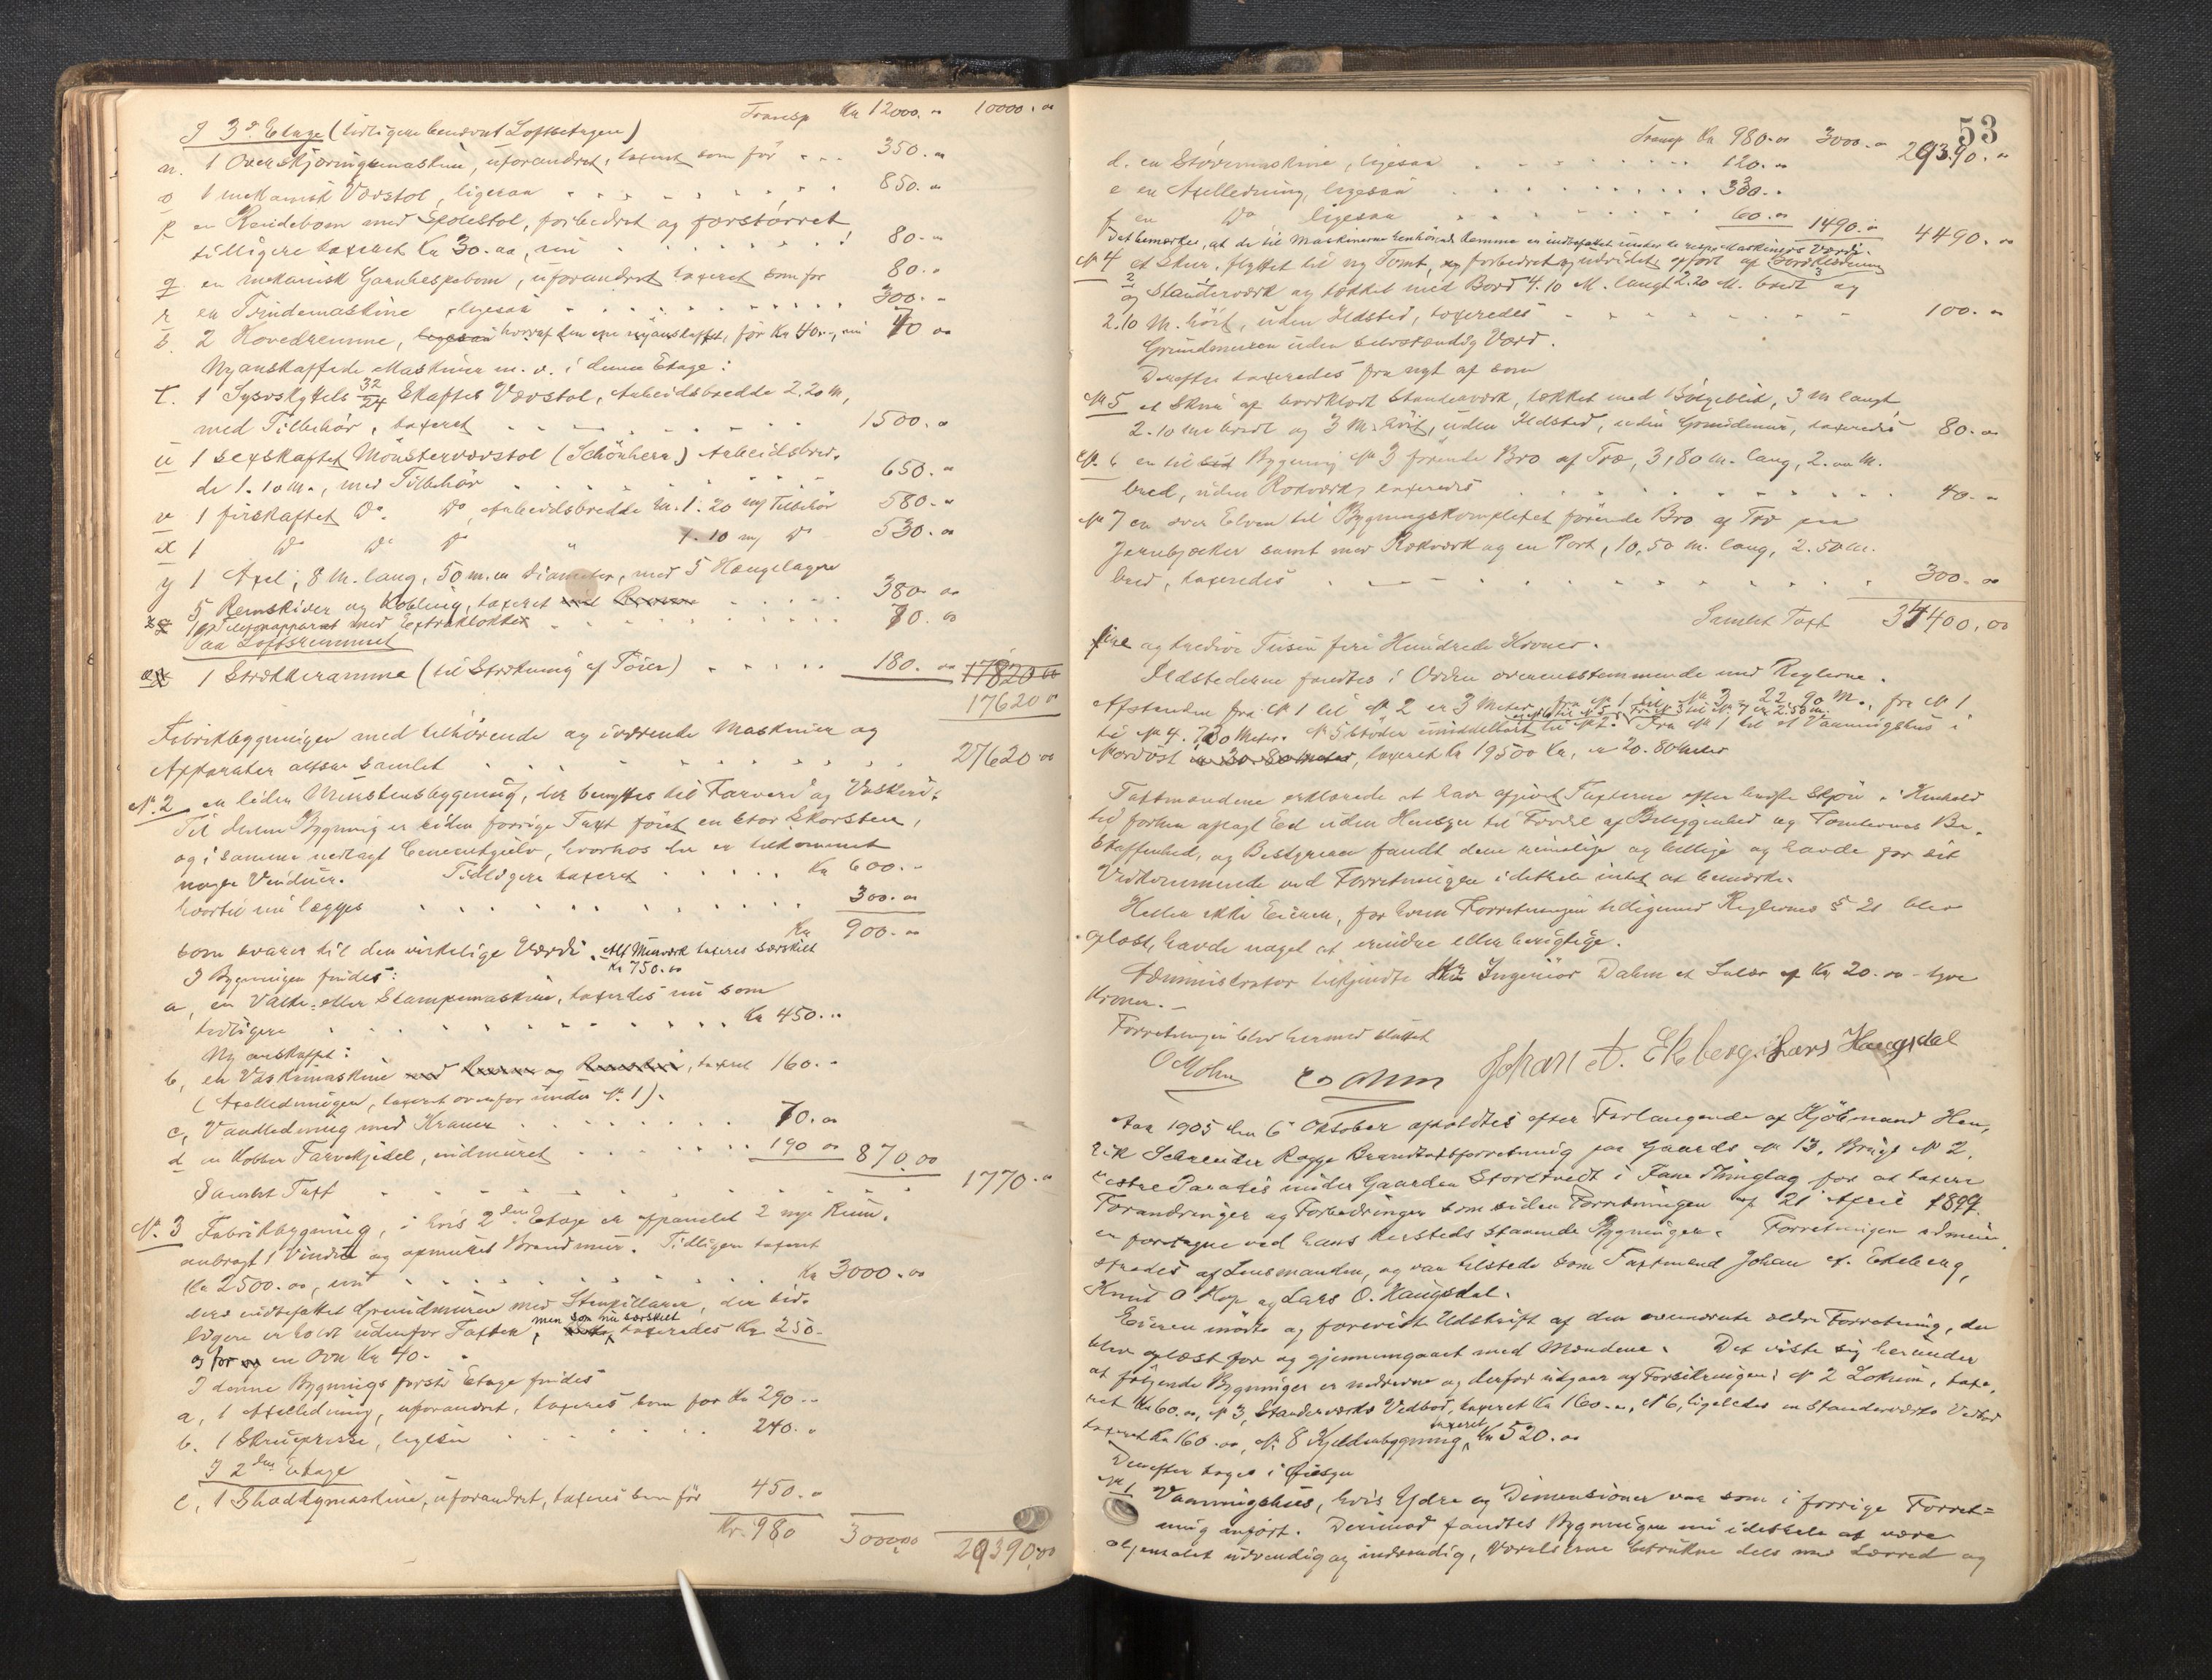 Transp Kr 12000.00 10000.00
I 3die Etage (tidligere benævnt Loftsetagen)
n. 1 Overskjæringsmaskine, uforandret, taxeret som før 350.00
o 1 mekanisk Vævstol, ligesaa 850.00
p en Rendebom med Spolestol, forbedret og forstørret,
tidligere taxeret Kr 30.00, nu 80.00
q en mekanisk Garnhespebom, uforandret taxeret som før 80.00
r en Tvindemaskine ligesaa 300.00
s. 2 Hovedremme, ligesaa hvoraf den ene nyanskaffet, før Kr 40.-, nu 70 00
Nyanskaffede Maskiner m. v. i denne Etage:
t. 1 Syvskyttels 32/24 Skaftes Vævstol, Arbeidsbredde 2.20 m,
med Tilbehør, taxeret 1500.00
u 1 sexskaftet Mønstervævstol (Schönherr) Arbeidsbred-
de 1.10 m., med Tilbehør 650.00
v 1 firskaftet Do. Do, Arbeidsbredde m. 1.20 m/ Tilbehør 580.00
x 1 Do Do Do " 1.10 m/ Do 530.00
y 1 Axel, 8 m. lang, 50 m.m diameter, med 5 Hængelagere
5 Remskiver og Kobling, taxeret 380.00
z 1 Telefonapparat med Extraklokke 70.00
Paa Loftsrummet
æ 1 Strækkeramme (til Strækning af Tøier) 180.00 17820 00
17620 00
Fabrikbygningen med tilhørende og iværende Maskiner og
Apparater altsaa samlet 27620 00
No. 2 en liden Murstensbygning, der benyttes til Farveri og Vaskeri.
Til denne Bygning er siden forrige Taxt føiet en stor Skorsten,
og i samme nedlagt Cementgulv, hvorhos der er tilkommet
nogle Vinduer. Tidligere taxeret Kr 600.-
hvortil nu lægges 300.00
Kr 900.00
som svarer til den virkelige Værdi. Alt Murværk taxeres særskilt
Kr 750.00
I Bygningen findes:
a, en Valke- eller Stampemaskine, taxeredes nu som
tidligere Kr 450.00
Ny anskaffet:
b, en Vaskemaskine med Remme og Remskive, taxeret 160.-
(Axelledningen, taxeret ovenfor under No. 1).
c, Vandledning med Kraner 70.00
d en Kobber Farvekjedel, indmuret 190 00 870,00
Samlet Taxt 1770.00
No. 3 Fabrikbygning, i hvis 2den Etage er afpanelet 2 nye Rum,
anbragt 1 Vindu og opmuret Brandmur. Tidligere taxeret
Kr 2500.00, nu Kr 3000.00
deri indbefattet Grundmuren med Stenpillarer, der tid-
ligere er holdt udenfor Taxten, men som nu særskilt taxeredes Kr 250.-
og for en Ovn Kr 40.-
I denne Bygnings første Etage findes
a, 1 Axelledning, uforandret, taxeres som før Kr 290.-
b. 1 Skruepresse, ligesaa 240.00
I 2den Etage
c, 1 Shoddymaskine, uforandret, taxeres som før 450.00
Kr. 980 3000,00 29390,00
53
Transp Kr 980.00 3000.00 29390.00
d. en Støvemaskine, ligesaa 120.00
e en Axelledning, ligesaa 330.-
f en Do ligesaa 60.00 1490.00 4490.00
Det bemærkes, at de til Maskinerne henhørende Remme er indbefattet under de resp. Maskiners Værdi.
No 4 et Skur, flyttet til ny Tomt, og forbedret og udvidet, opført af Bordklædning
og Standerværk og tækket med Bord 4.10 M. langt 2.20 M. bredt og
2.10 M. høit, uden Ildsted, taxeredes 100.00
Grundmuren uden selvstændig Værd.
Derefter taxeredes fra nyt af som
No 5 et Skur af bordklædt Standerværk, tækket med Bølgeblik, 3 m langt
2.10 m bredt og 3 M. høit, uden Ildsted, uden Grundmur, taxeredes 80.00
No. 6 en til Bygning No 3 førende Bro af Træ, 3,80 m. lang, 2.00 m.
bred, uden Rækværk, taxeredes 40.00
No 7 en over Elven til Bygningskomplexet førende Bro af Træ paa
Jernbjælker samt med Rækværk og en Port, 10,50 m. lang, 2.50 m.
bred, taxeredes 300.00
Samlet Taxt 34400,00
fire og tredive Tusen fire Hundrede Kroner.
Ildstederne fandtes i Orden overensstemmende med Reglerne.
Afstanden fra No 1 til No 2 er 3 Meter, fra No 1 til No 3 22.90 M., fra No 1
til No 4. 7.20 Meter. No 5 støder umiddelbart til No 2. Fra No 1 til et Vaaningshus i
Nordøst er 20.80 Meter, taxeret Kr 19500 Kr, er 20.80 Meter
Taxtmændene erklærede at have afgivet Taxterne efter bedste Skjøn i Henhold
til forhen aflagt Ed uden Hensyn til Fordel af Beliggenhed og Tomternes Be-
skaffenhed, og Bestyreren fandt dem rimelige og billige og havde for sit
Vedkommende ved Forretningen idethele intet at bemærke.
Heller ikke Eieren, for hvem Forretningen tilligemed Reglernes § 21 blev
oplæst, havde noget at erindre eller berigtige.
Administrator tilkjendte Hr Ingeniør Dahm et Salær af Kr 20.00 - tyve
Kroner.-
Forretningen blev hermed sluttet
O Mohn Dahm Johan A. Ekeberg. Lars Haugsdal
Aar 1905 den 6te Oktober afholdtes efter Forlangende af Kjøbmand Hen-
rik Schreuder Rogge Brandtaxtforretning paa Gaards No 13, Brugs No 2,
vestre Paradis under Gaarden Storetvedt i Fane Thinglag for at taxere
Forandringer og Forbedringer som siden Forretningen af 21 April 1897
er foretagne ved hans hersteds staaende Bygninger. Forretningen admini-
streredes af Lensmanden, og var tilstede som Taxtmænd Johan A. Ekeberg,
Knud O Hop og Lars O. Haugsdal.
Eieren mødte og foreviste Udskrift af den ovennævnte ældre Forretning, der
blev oplæst for og gjennemgaaet med Mændene. Det viste sig herunder
at følgende Bygninger er nedrevne og derfor udgaar af Forsikringen: No 2 Lokum, taxe-
ret Kr 60.00, No 3, Standerværks Vedbod, taxeret Kr 160.00, No 6, ligeledes en Standerværks Vedbod
taxeret Kr 160.00, No. 8 Kjeldsbygning, taxeret Kr 520.00
Derefter toges i Øiesyn
No 1 Vaaningshus, hvis Ydre og Dimensioner var som i forrige Forret-
ning anført. Derimod fandtes Bygningen nu idethele at være
oljemalet udvendig og indvendig, Værelserne betrukne dels med Lærred og